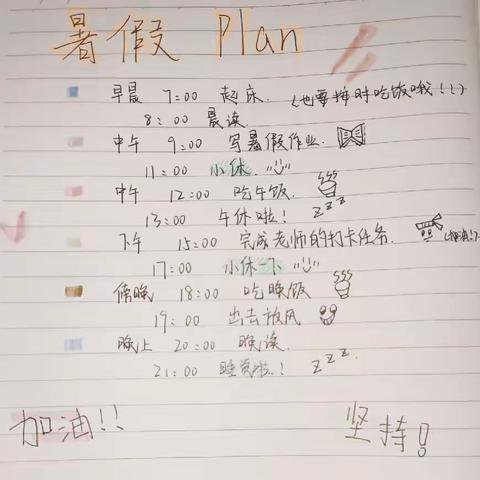 暑假 Plan
早晨 7:00 起床. (也要按时吃饭哦!!!)
8:00 晨读.
中午 9:00 写暑假作业.
11:00 小休.
中午 12:00 吃午饭.
13:00 午休啦! zzz
下午 15:00 完成老师的打卡任务.
17:00 小休一下
傍晚 18:00 吃晚饭
19:00 出去放风
晚上 20:00 晚读.
21:00 睡觉啦! zzz
加油!! 坚持!